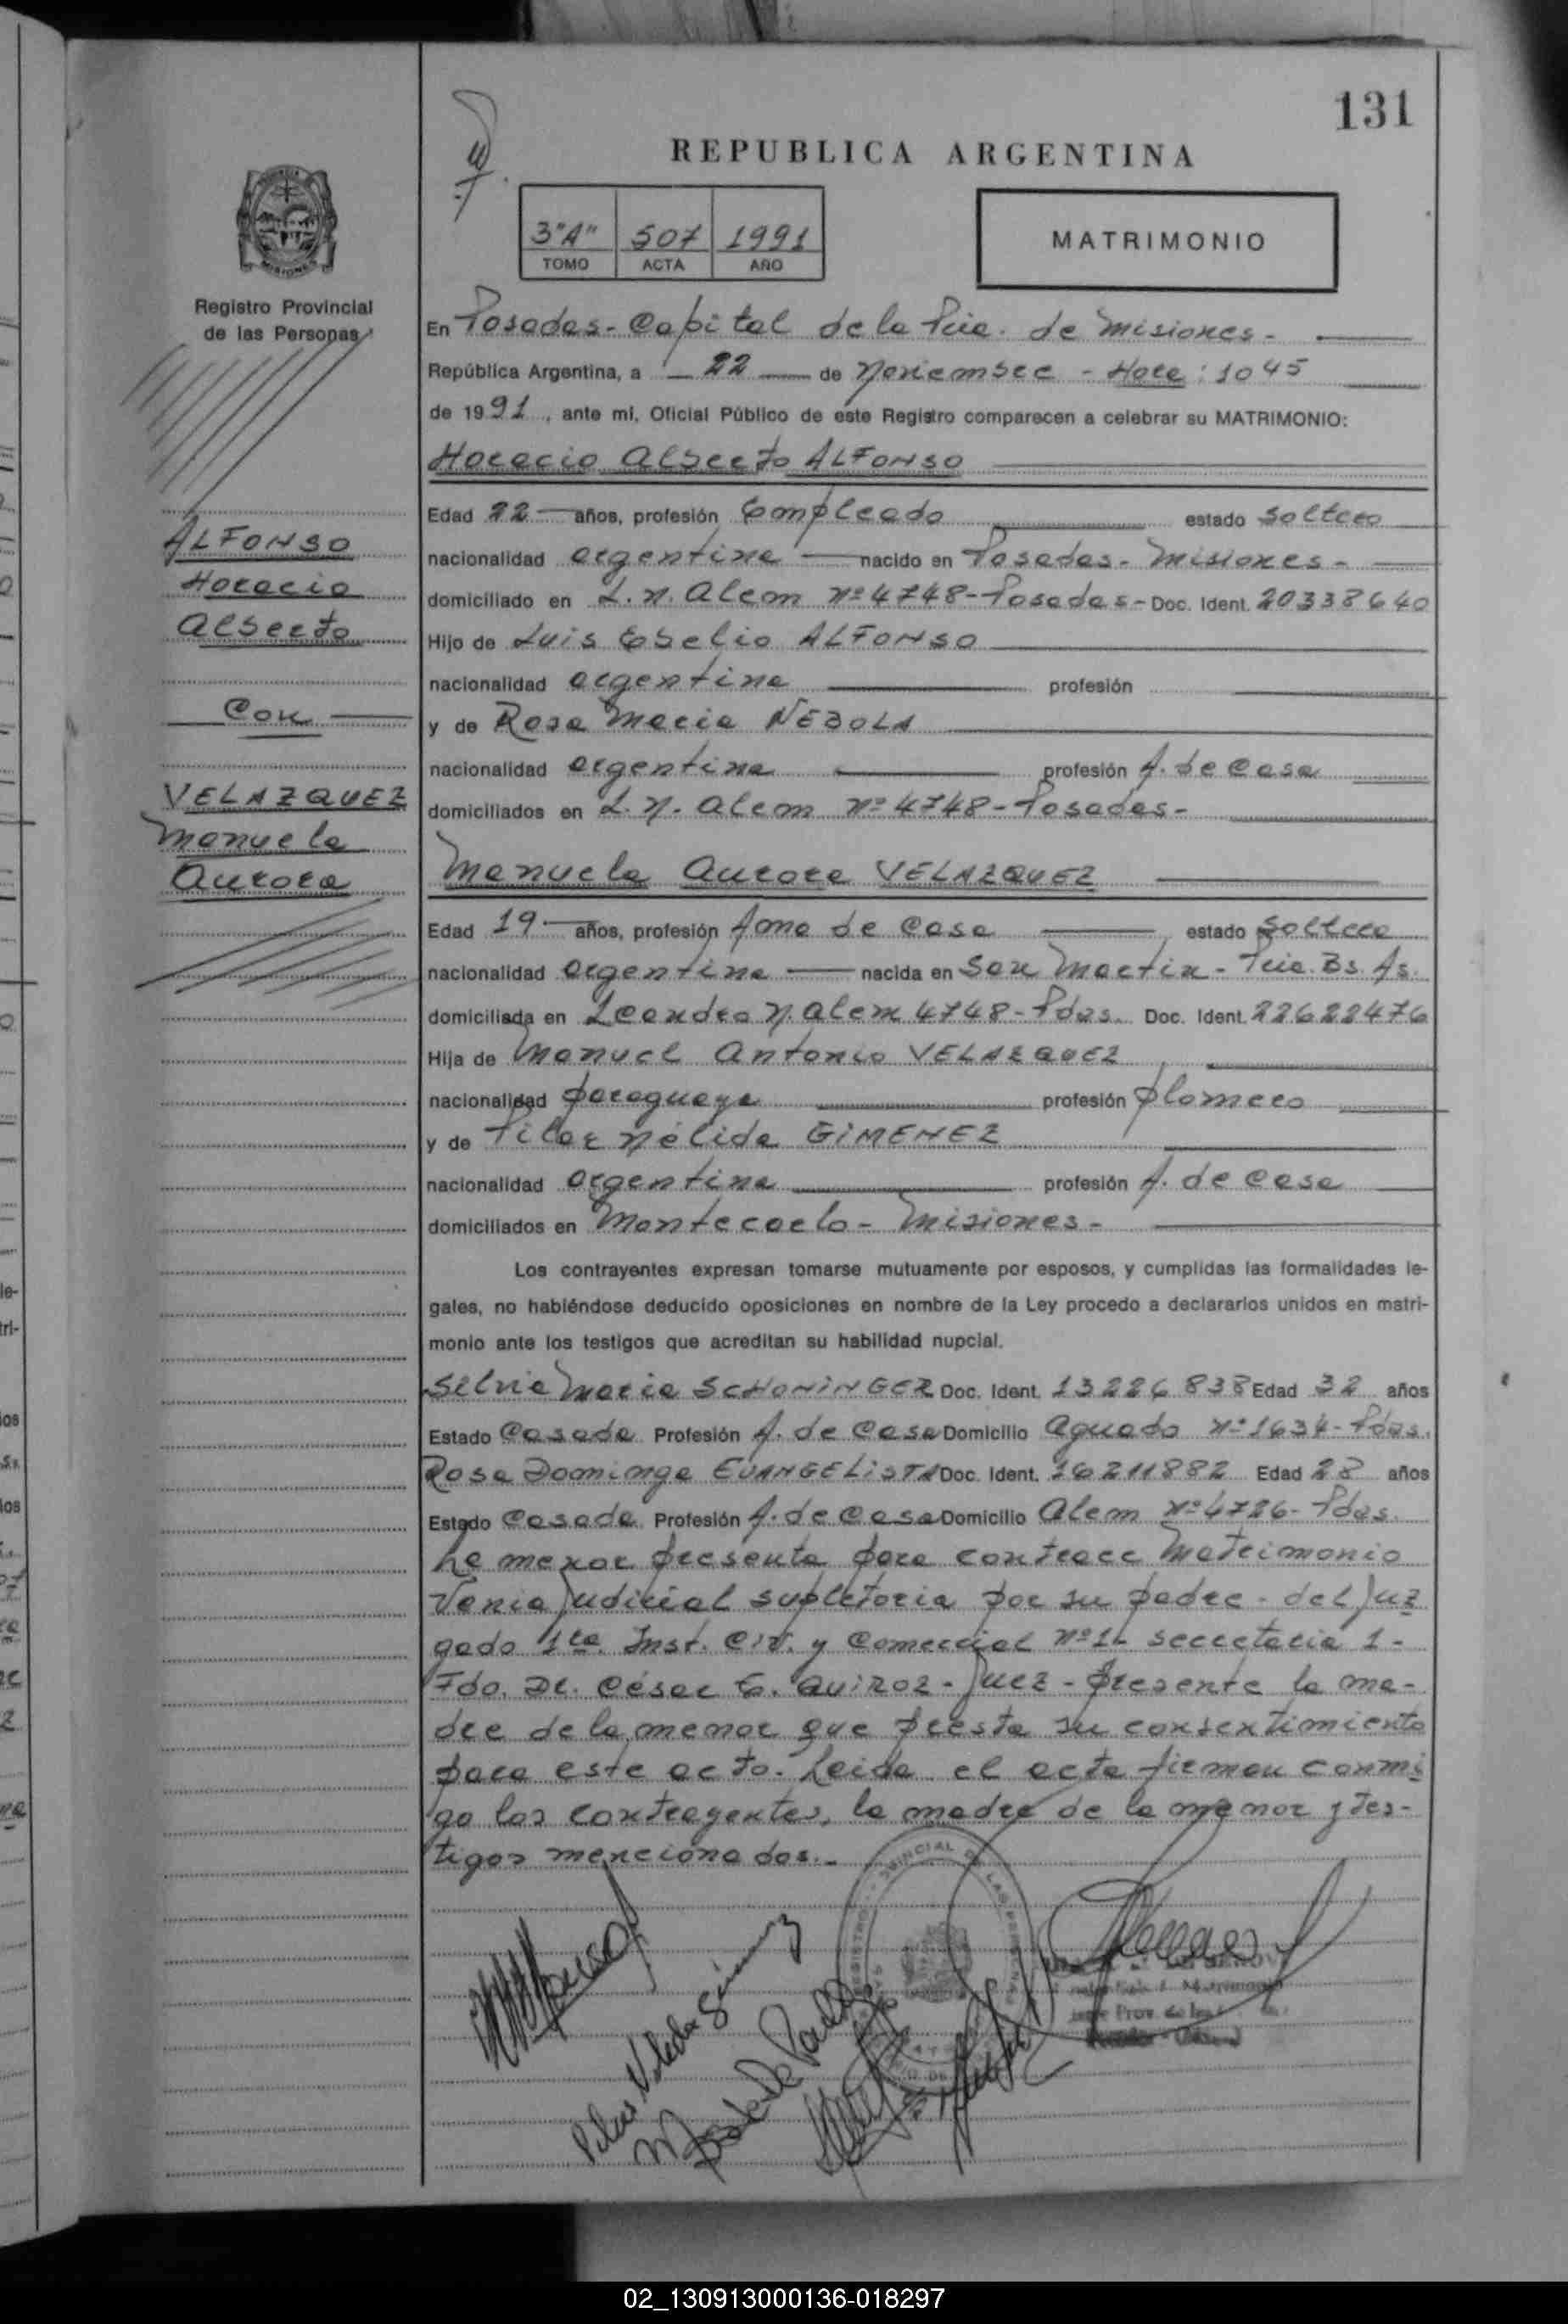 131
REPUBLICA ARGENTINA
3"A" 507 1991
TOMO ACTA AÑO
MATRIMONIO
Registro Provincial
de las Personas
En Posadas - Capital de la Pcia. de Misiones -
República Argentina, a 22 de Noviembre - Hora: 1045
de 1991, ante mí, Oficial Público de este Registro comparecen a celebrar su MATRIMONIO:
Horacio Alberto ALFONSO
Edad 22 años, profesión Empleado estado Soltero
nacionalidad argentina nacido en Posadas - Misiones -
domiciliado en L. N. Alem Nº 4748 - Posadas - Doc. Ident. 20338640
Hijo de Luis Ebelio ALFONSO
nacionalidad argentina profesión
y de Rosa Maria NEBOLA
nacionalidad argentina profesión A. de Casa
domiciliados en L. N. Alem Nº 4748 - Posadas -
ALFONSO
Horacio
Alberto
Con
VELAZQUEZ
Manuela
Aurora
Manuela Aurora VELAZQUEZ
Edad 19 años, profesión Ama de Casa estado Soltera
nacionalidad argentina nacida en San Martin - Pcia. Bs. As.
domiciliada en Leandro N. Alem 4748 - Pdas. Doc. Ident. 22622476
Hija de Manuel Antonio VELAZQUEZ
nacionalidad paraguaya profesión plomero
y de Pilar Nélida GIMENEZ
nacionalidad argentina profesión A. de Casa
domiciliados en Montecarlo - Misiones -
Los contrayentes expresan tomarse mutuamente por esposos, y cumplidas las formalidades le-
gales, no habiéndose deducido oposiciones en nombre de la Ley procedo a declararlos unidos en matri-
monio ante los testigos que acreditan su habilidad nupcial.
Silvia Maria SCHONINGER Doc. Ident. 13226838 Edad 32 años
Estado Casada Profesión A. de Casa Domicilio Aguado Nº 1634 - Pdas.
Rosa Dominga EVANGELISTA Doc. Ident. 16211882 Edad 28 años
Estado Casada Profesión A. de Casa Domicilio Alem Nº 4726 - Pdas.
La menor presenta para contraer Matrimonio
Venia Judicial supletoria por su padre - del Juz
gado 1ra. Inst. Civ. y Comercial Nº 1 - secretaria 1 -
Fdo. Dr. César E. QUIROZ - Juez - Presente la ma-
dre de la menor que presta su consentimiento
para este acto. Leida el acta firman conmi
go los contrayentes, la madre de la menor y tes-
tigos mencionados. -
Pilar Nelida Gimenez
02_130913000136-018297